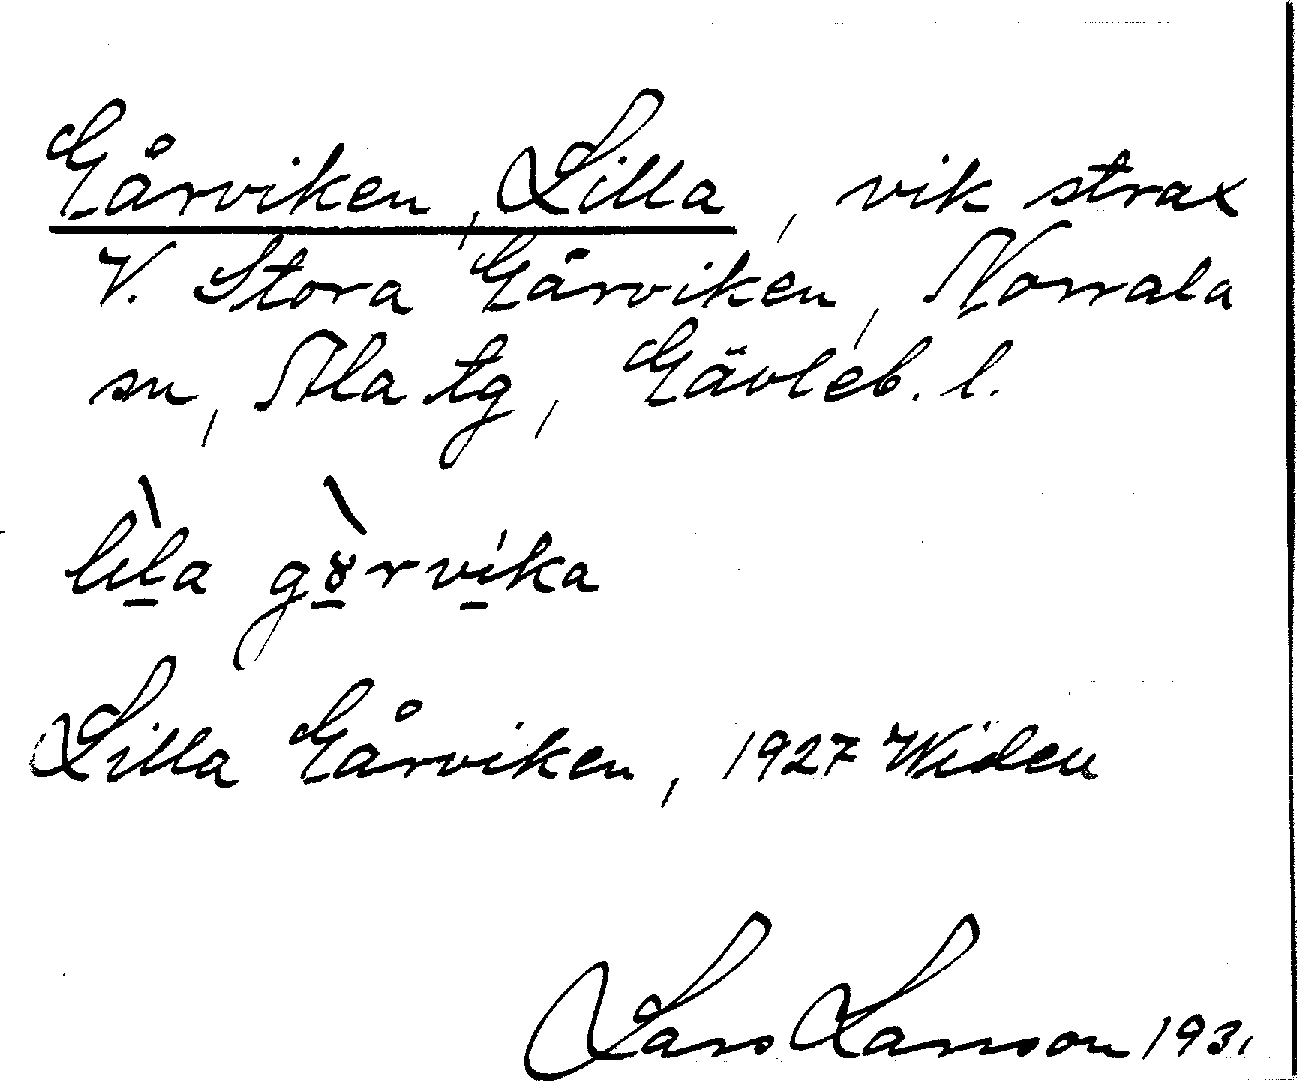 Gårviken, Lilla, vik strax
V. Stora Gårviken, Norrala
sn, Ala tg, Gävleb. l.
lìla gòrvíka
Lilla Gårviken, 1927 Widen
Lars Larsson 1931